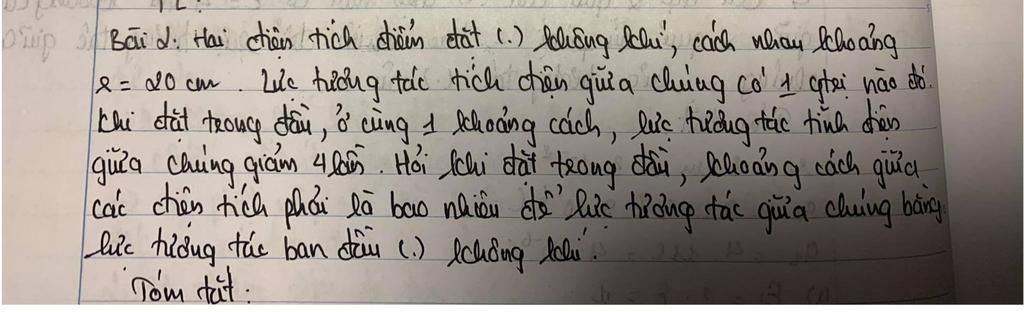 Bài 2: Hai điện tích điểm đặt (.) không khí, cách nhau khoảng
r = 20 cm. Lực tương tác tích điện giữa chúng có 1 gtrị nào đó.
Khi đặt trong dầu, ở cùng 1 khoảng cách, lực tương tác tĩnh điện
giữa chúng giảm 4 lần. Hỏi khi đặt trong dầu, khoảng cách giữa
các điện tích phải là bao nhiêu để lực tương tác giữa chúng bằng
lực tương tác ban đầu (.) không khí.
Tóm tắt: